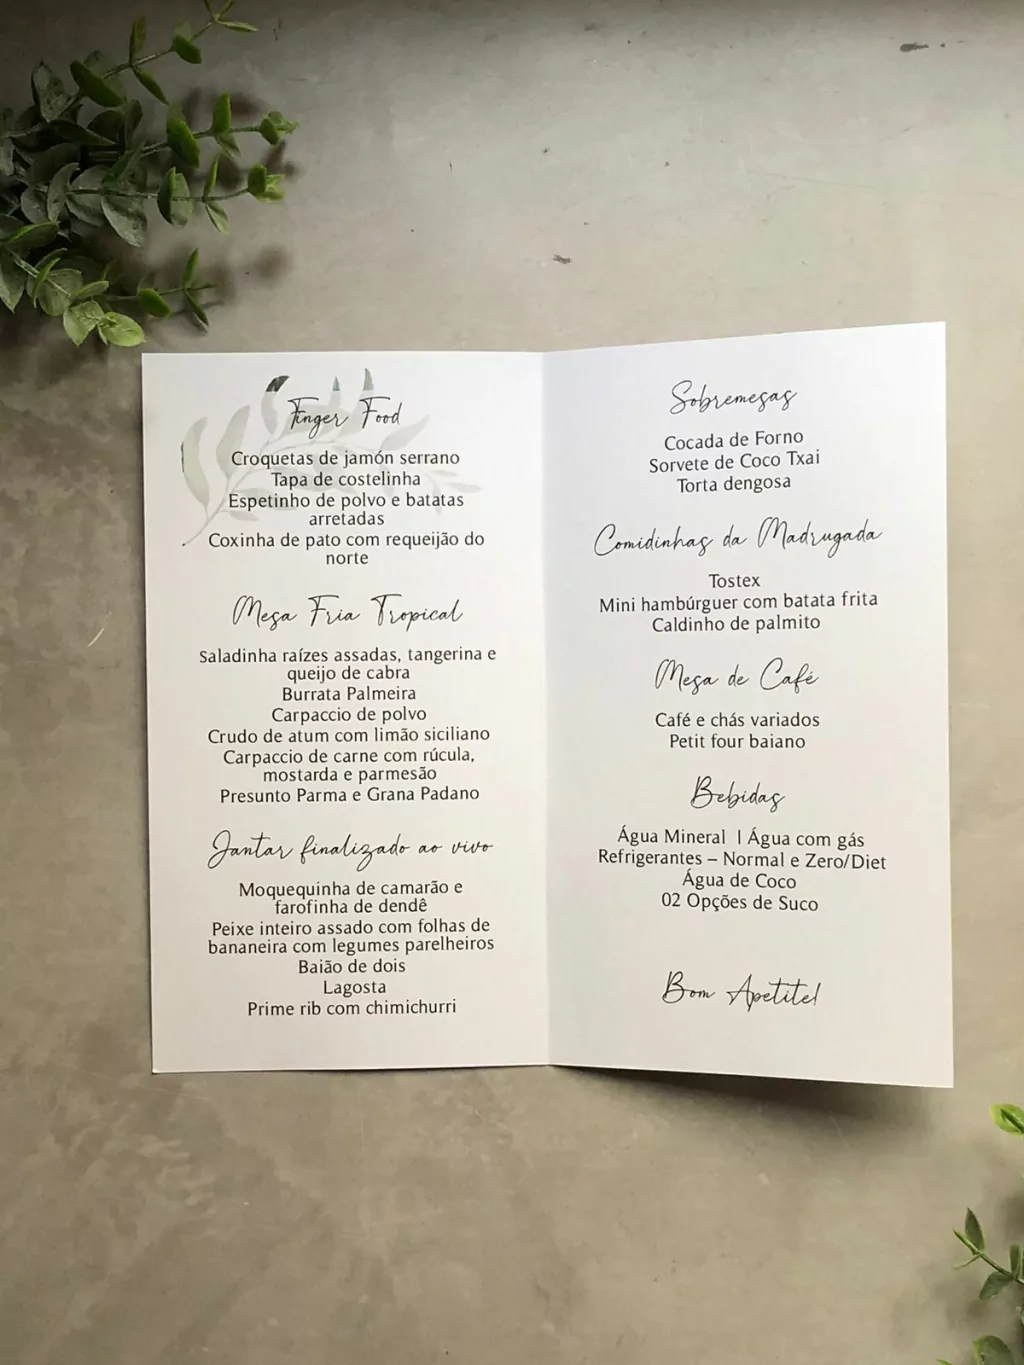 Finger Food
Croquetas de jamón serrano
Tapa de costelinha
Espetinho de polvo e batatas
arretadas
Coxinha de pato com requeijão do
norte
Mesa Fria Tropical
Saladinha raízes assadas, tangerina e
queijo de cabra
Burrata Palmeira
Carpaccio de polvo
Crudo de atum com limão siciliano
Carpaccio de carne com rúcula,
mostarda e parmesão
Presunto Parma e Grana Padano
Jantar finalizado ao vivo
Moquequinha de camarão e
farofinha de dendê
Peixe inteiro assado com folhas de
bananeira com legumes parelheiros
Baião de dois
Lagosta
Prime rib com chimichurri
Sobremesas
Cocada de Forno
Sorvete de Coco Txai
Torta dengosa
Comidinhas da Madrugada
Tostex
Mini hambúrguer com batata frita
Caldinho de palmito
Mesa de Café
Café e chás variados
Petit four baiano
Bebidas
Água Mineral | Água com gás
Refrigerantes – Normal e Zero/Diet
Água de Coco
02 Opções de Suco
Bom Apetite!